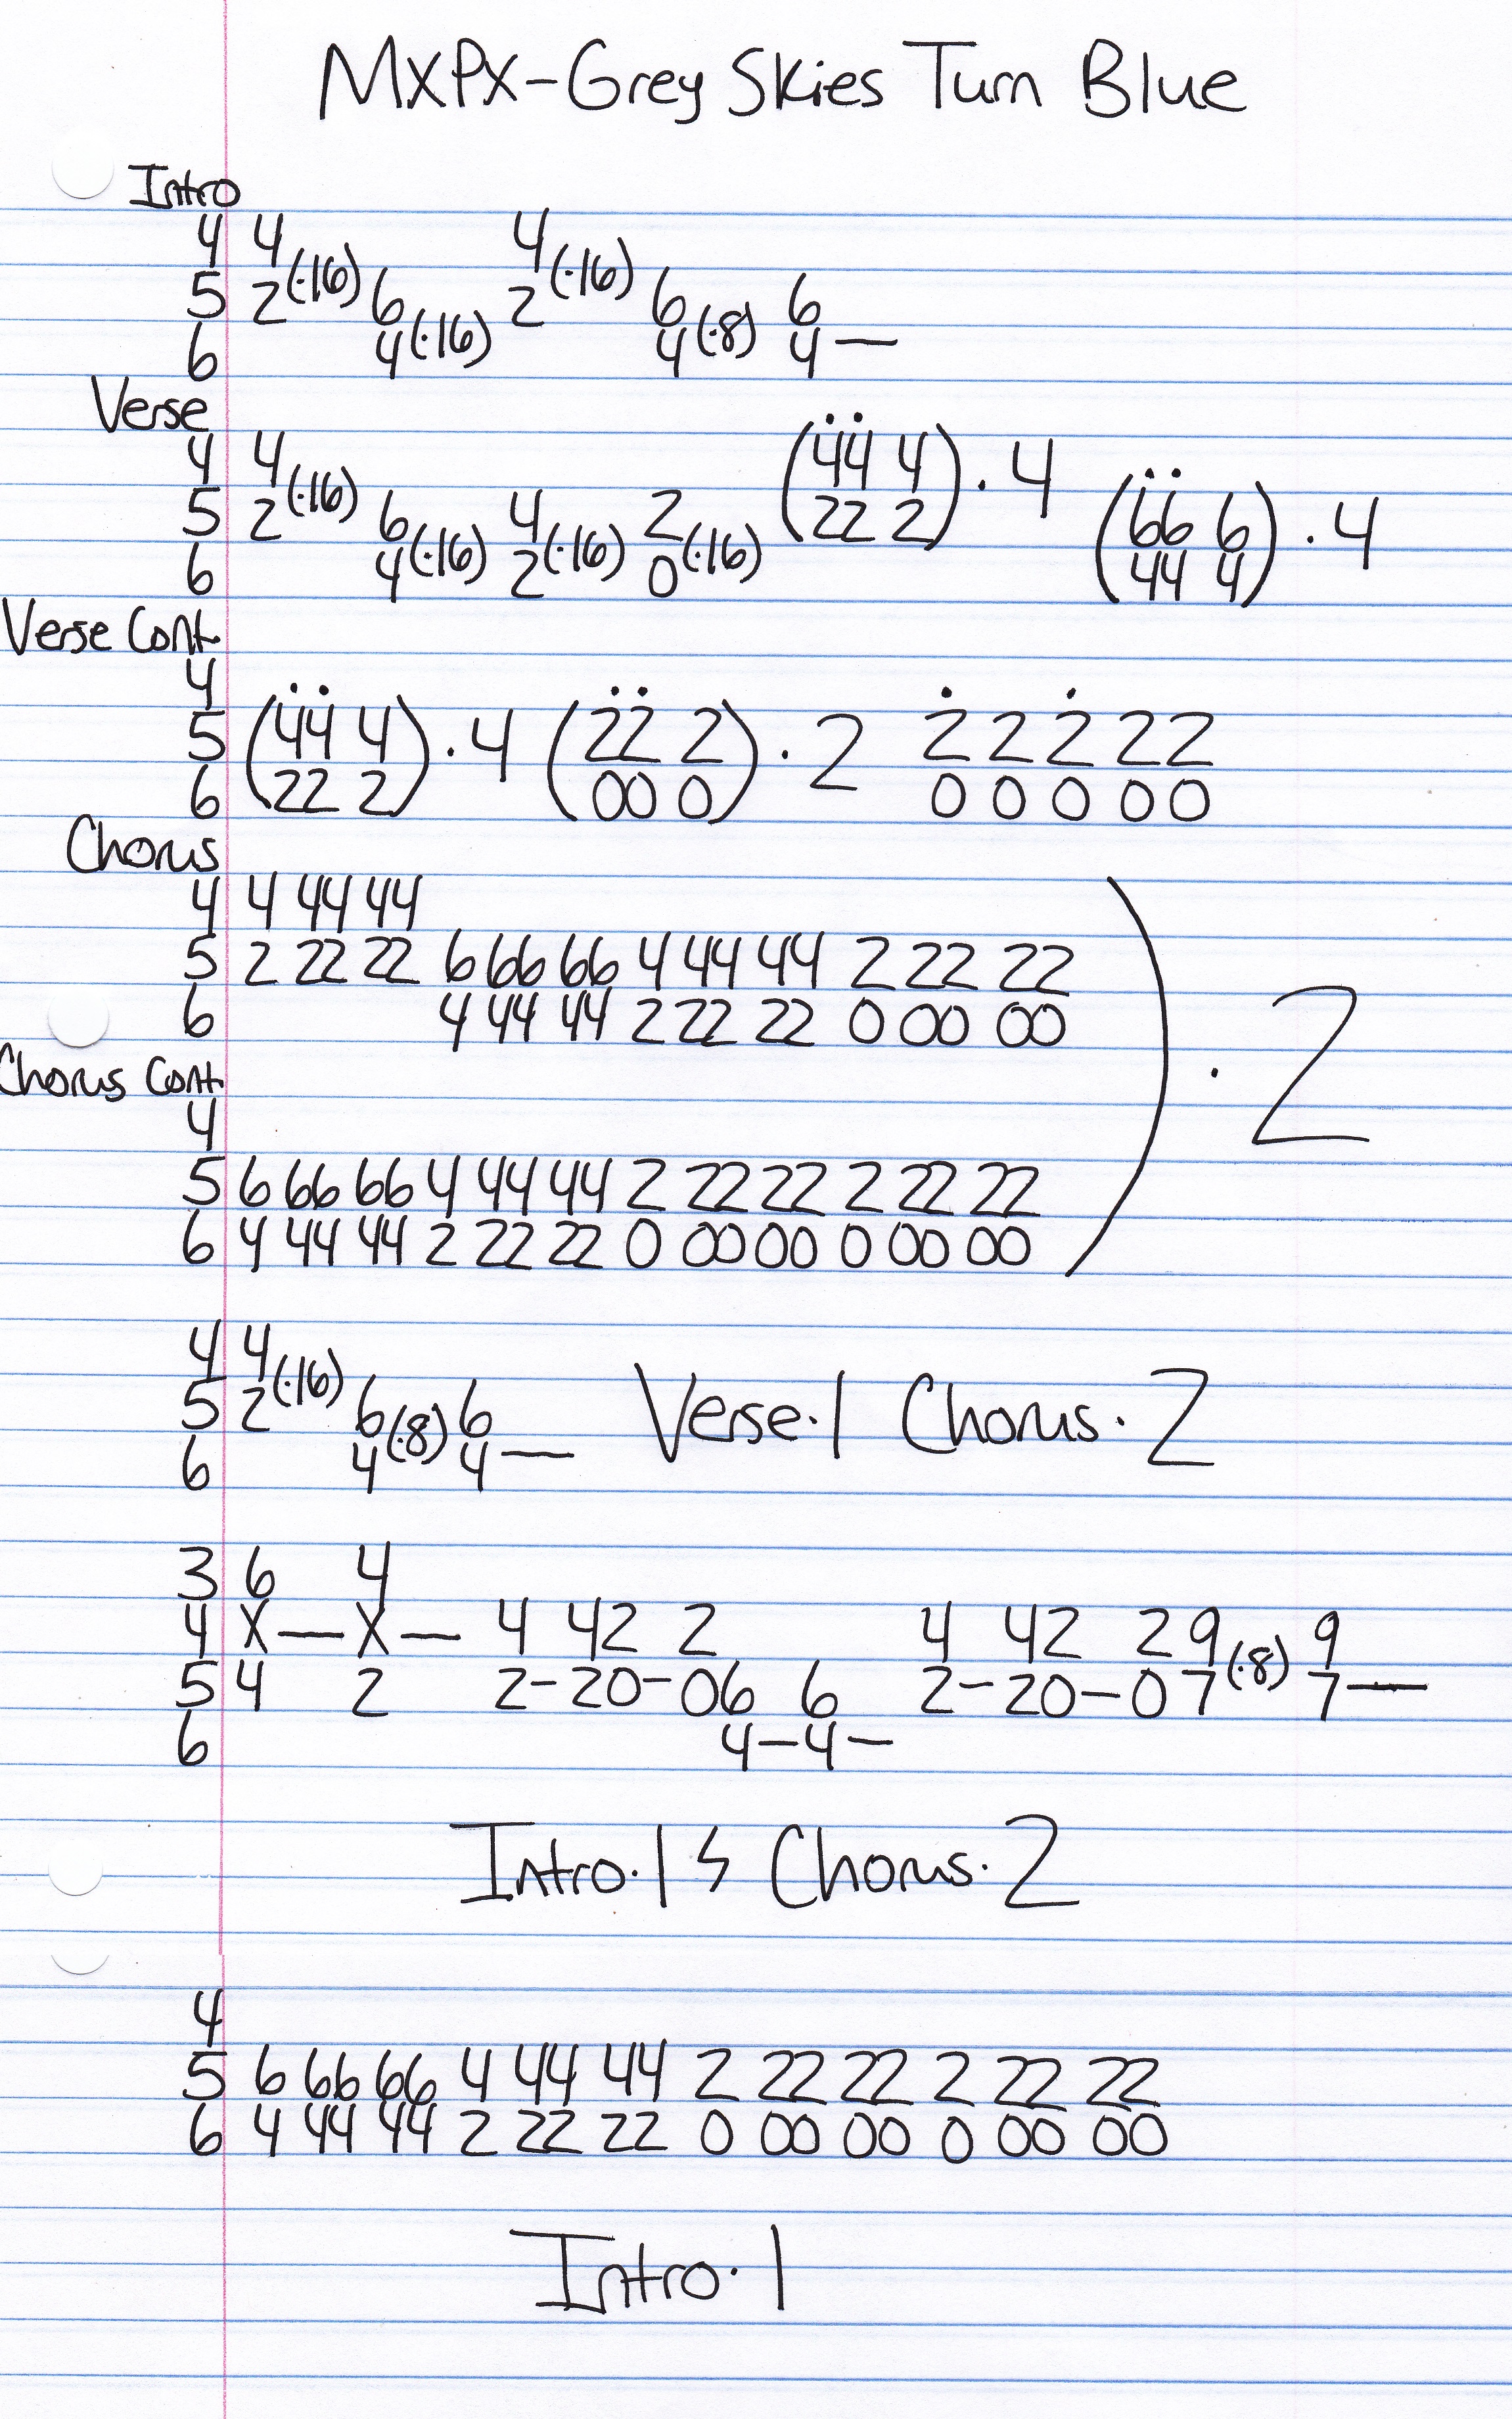 MXPX-Grey Skies Turn Blue
Intro
4 4 4
(·16) (·16)
5 2 6 2 6 6
6 4(·16) 4(·8) 4—
Verse
4 4 (4̇4̇ 4)·4
(·16)
5 2 6 4 2 (22 2) (6̇6̇ 6)·4
6 4(·16) 2(·16) 0(·16) (44 4)
Verse Cont.
4
5 (4̇4̇ 4)·4 (2̇2̇ 2)·2 2̇ 2 2̇ 2 2
6 (22 2) (00 0) 0 0 0 0 0
Chorus
4 4 44 44
5 2 22 22 6 66 66 4 44 44 2 22 22
6 4 44 44 2 22 22 0 00 00
) · 2
Chorus Cont.
4
5 6 66 66 4 44 44 2 22 22 2 22 22
6 4 44 44 2 22 22 0 00 00 0 00 00
4 4
(·16)
5 2 6 6 Verse·1 Chorus·2
(·8)
6 4 4—
3 6 4
4 X—X— 4 42 2 4 42 2 9 9
(·8)
5 4 2 2-20-06 6 2-20-0 7 7—
6 4-4-
Intro·1 & Chorus·2
4
5 6 66 66 4 44 44 2 22 22 2 22 22
6 4 44 44 2 22 22 0 00 00 0 00 00
Intro·1